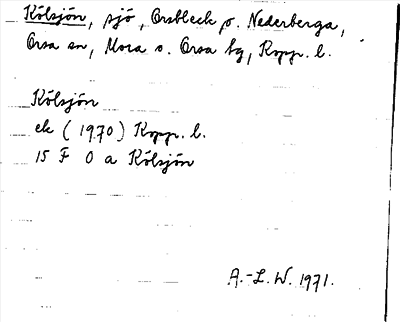 Kölsjön, sjö, Orsbleck o. Nederberga,
Orsa sn, Mora o. Orsa tg, Kopp. l.
Kölsjön
ek (1970) Kopp. l.
15 F 0 a Kölsjön
A.-L. W. 1971.